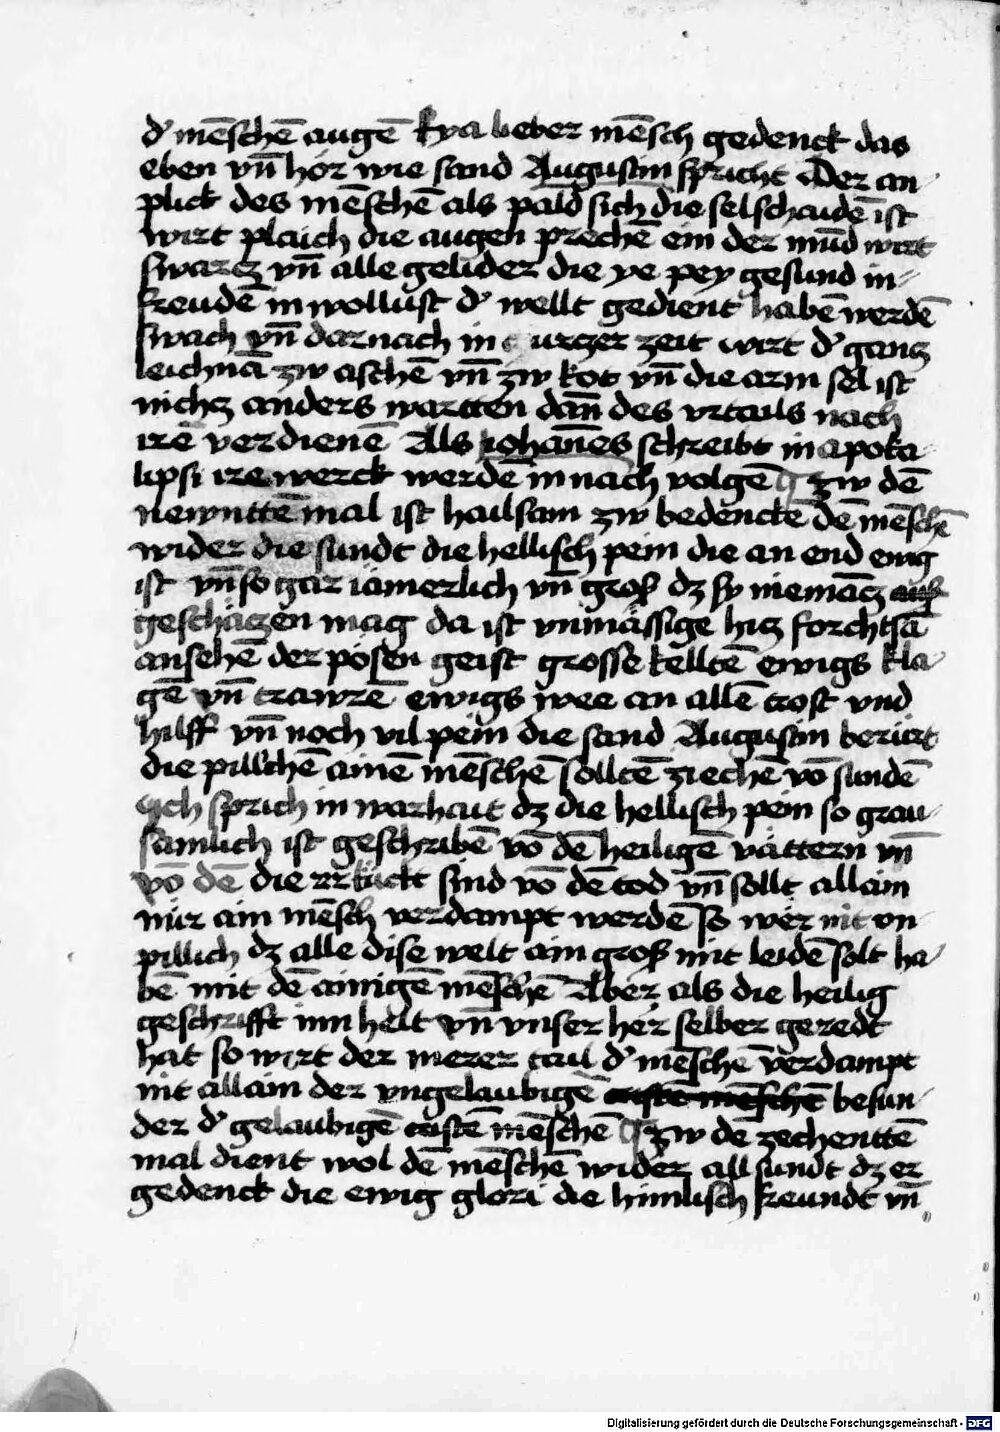 d' mēschē augē Eya lieber mēsch gedenck das
eben vn̄ hör wie sand Augustin spricht Der an-
plick des mēschē als pald sich die sel schaidē ist
wirt plaich die augen prechē em der mūd wirt
swarcz vn̄ alle gelider die ye pey gesund in-
freudē in wollust d' wellt gedient habē werdē
swach vn̄ darnach in curczer zeit wirt d' gancz
leichnā zw aschē vn̄ zw kot vn̄ die arm sel ist
nichcz anders wartten dan̄ des vrtails nach
irē verdienē Als iohan̄es schreibt in apoka-
lipsi ire werck werdē in nach volgē ¶ zw dē
newnttē mal ist hailsam zw bedenckē dē mēschē
wider die sundt die hellisch pein die an end ewig
ist vn̄ so gar iāmerlich vn̄ groß dz sy niemācz
geschäczen mag da ist vnmässige hicz forchtsā
ansehē der pösen geist grosse kelltē ewigs kla-
gē vn̄ trawrē ewigs wee an allē trost vnd
hilff vn̄ noch vil pein die sand Augustin berürt
die pillichē ainē mēschē solltē ziechē vō sundē
Ich sprich in warhait dz die hellisch pein so grau-
samlich ist geschribē vō dē heiligē vättern vn̄
vō dē die erkückt sind vō dē tod vn̄ sollt allain
nür ain mēsch verdampt werdē so wër nit vn-
pillich dz alle dise welt ain groß mit leidē solt ha-
bē mit dē ainigē mēschē Aber als die heilig
geschrifft inn helt vn̄ vnser her selber geredt
hat so wirt der merer tail d' mēschē verdampt
nit allain der vngelaubigē besun-
der d' gelaubigē cristē mēschē ¶ zw dē zechenttē
mal dient wol dē mēschē wider all sundt dz er
gedenck die ewig glori die himlisch freundt vn̄
Digitalisierung gefördert durch die Deutsche Forschungsgemeinschaft - DFG